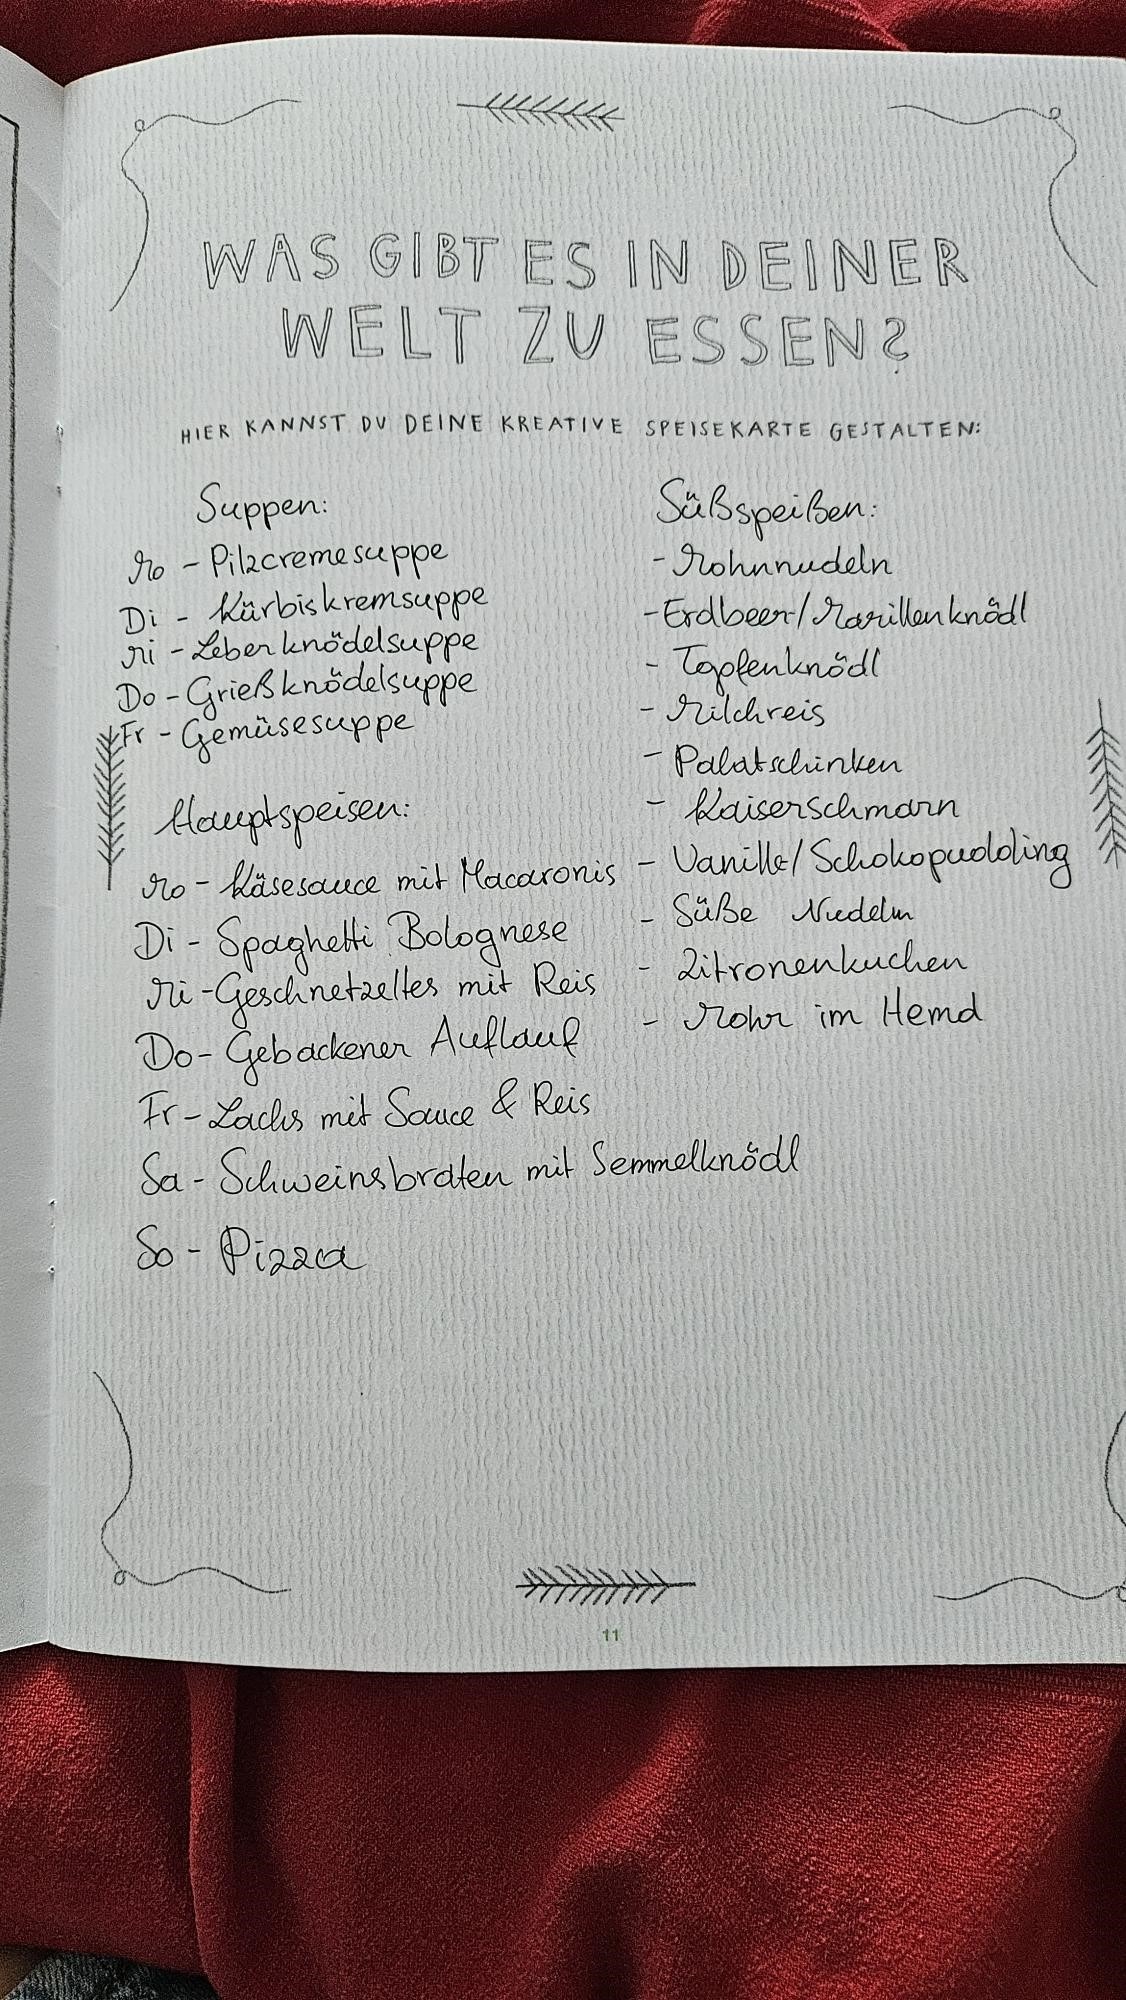 WAS GIBT ES IN DEINER
WELT ZU ESSEN?
HIER KANNST DU DEINE KREATIVE SPEISEKARTE GESTALTEN:
Suppen:
Mo - Pilzcremesuppe
Di - Kürbiskremsuppe
Mi - Leberknödelsuppe
Do - Grießknödelsuppe
Fr - Gemüsesuppe
Hauptspeisen:
Mo - Käsesauce mit Macaronis
Di - Spaghetti Bolognese
Mi - Geschnetzeltes mit Reis
Do - Gebackener Auflauf
Fr - Lachs mit Sauce & Reis
Sa - Schweinsbraten mit Semmelknödl
So - Pizza
Süßspeißen:
- Mohnnudeln
- Erdbeer/Marillenknödl
- Topfenknödl
- Milchreis
- Palatschinken
- Kaiserschmarn
- Vanille/Schokopudding
- Süße Nudeln
- Zitronenkuchen
- Mohr im Hemd
11